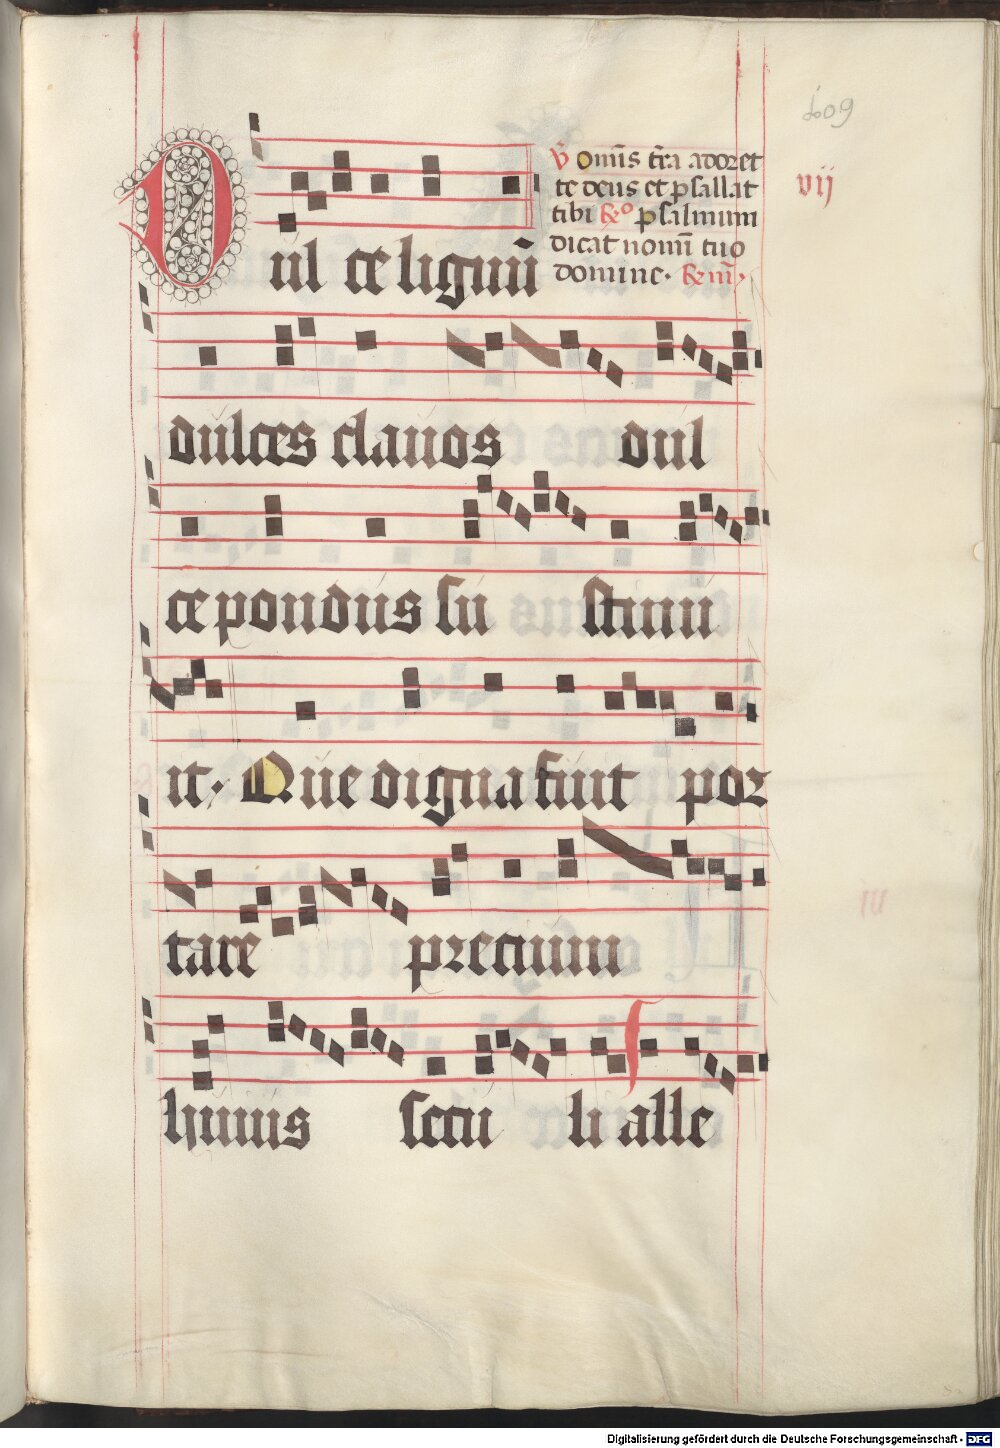 609
vij
V̄ Om̄is t̄ra adoret
te deus et psallat
tibi &c̊ psalmum
dicat nomī tuo
domine. & m̄.
Dul ce lignū
dulces clauos dul
ce pondus su stinu
it. Que digna fuit por
tare precium
huius secu li alle
Digitalisierung gefördert durch die Deutsche Forschungsgemeinschaft - DFG